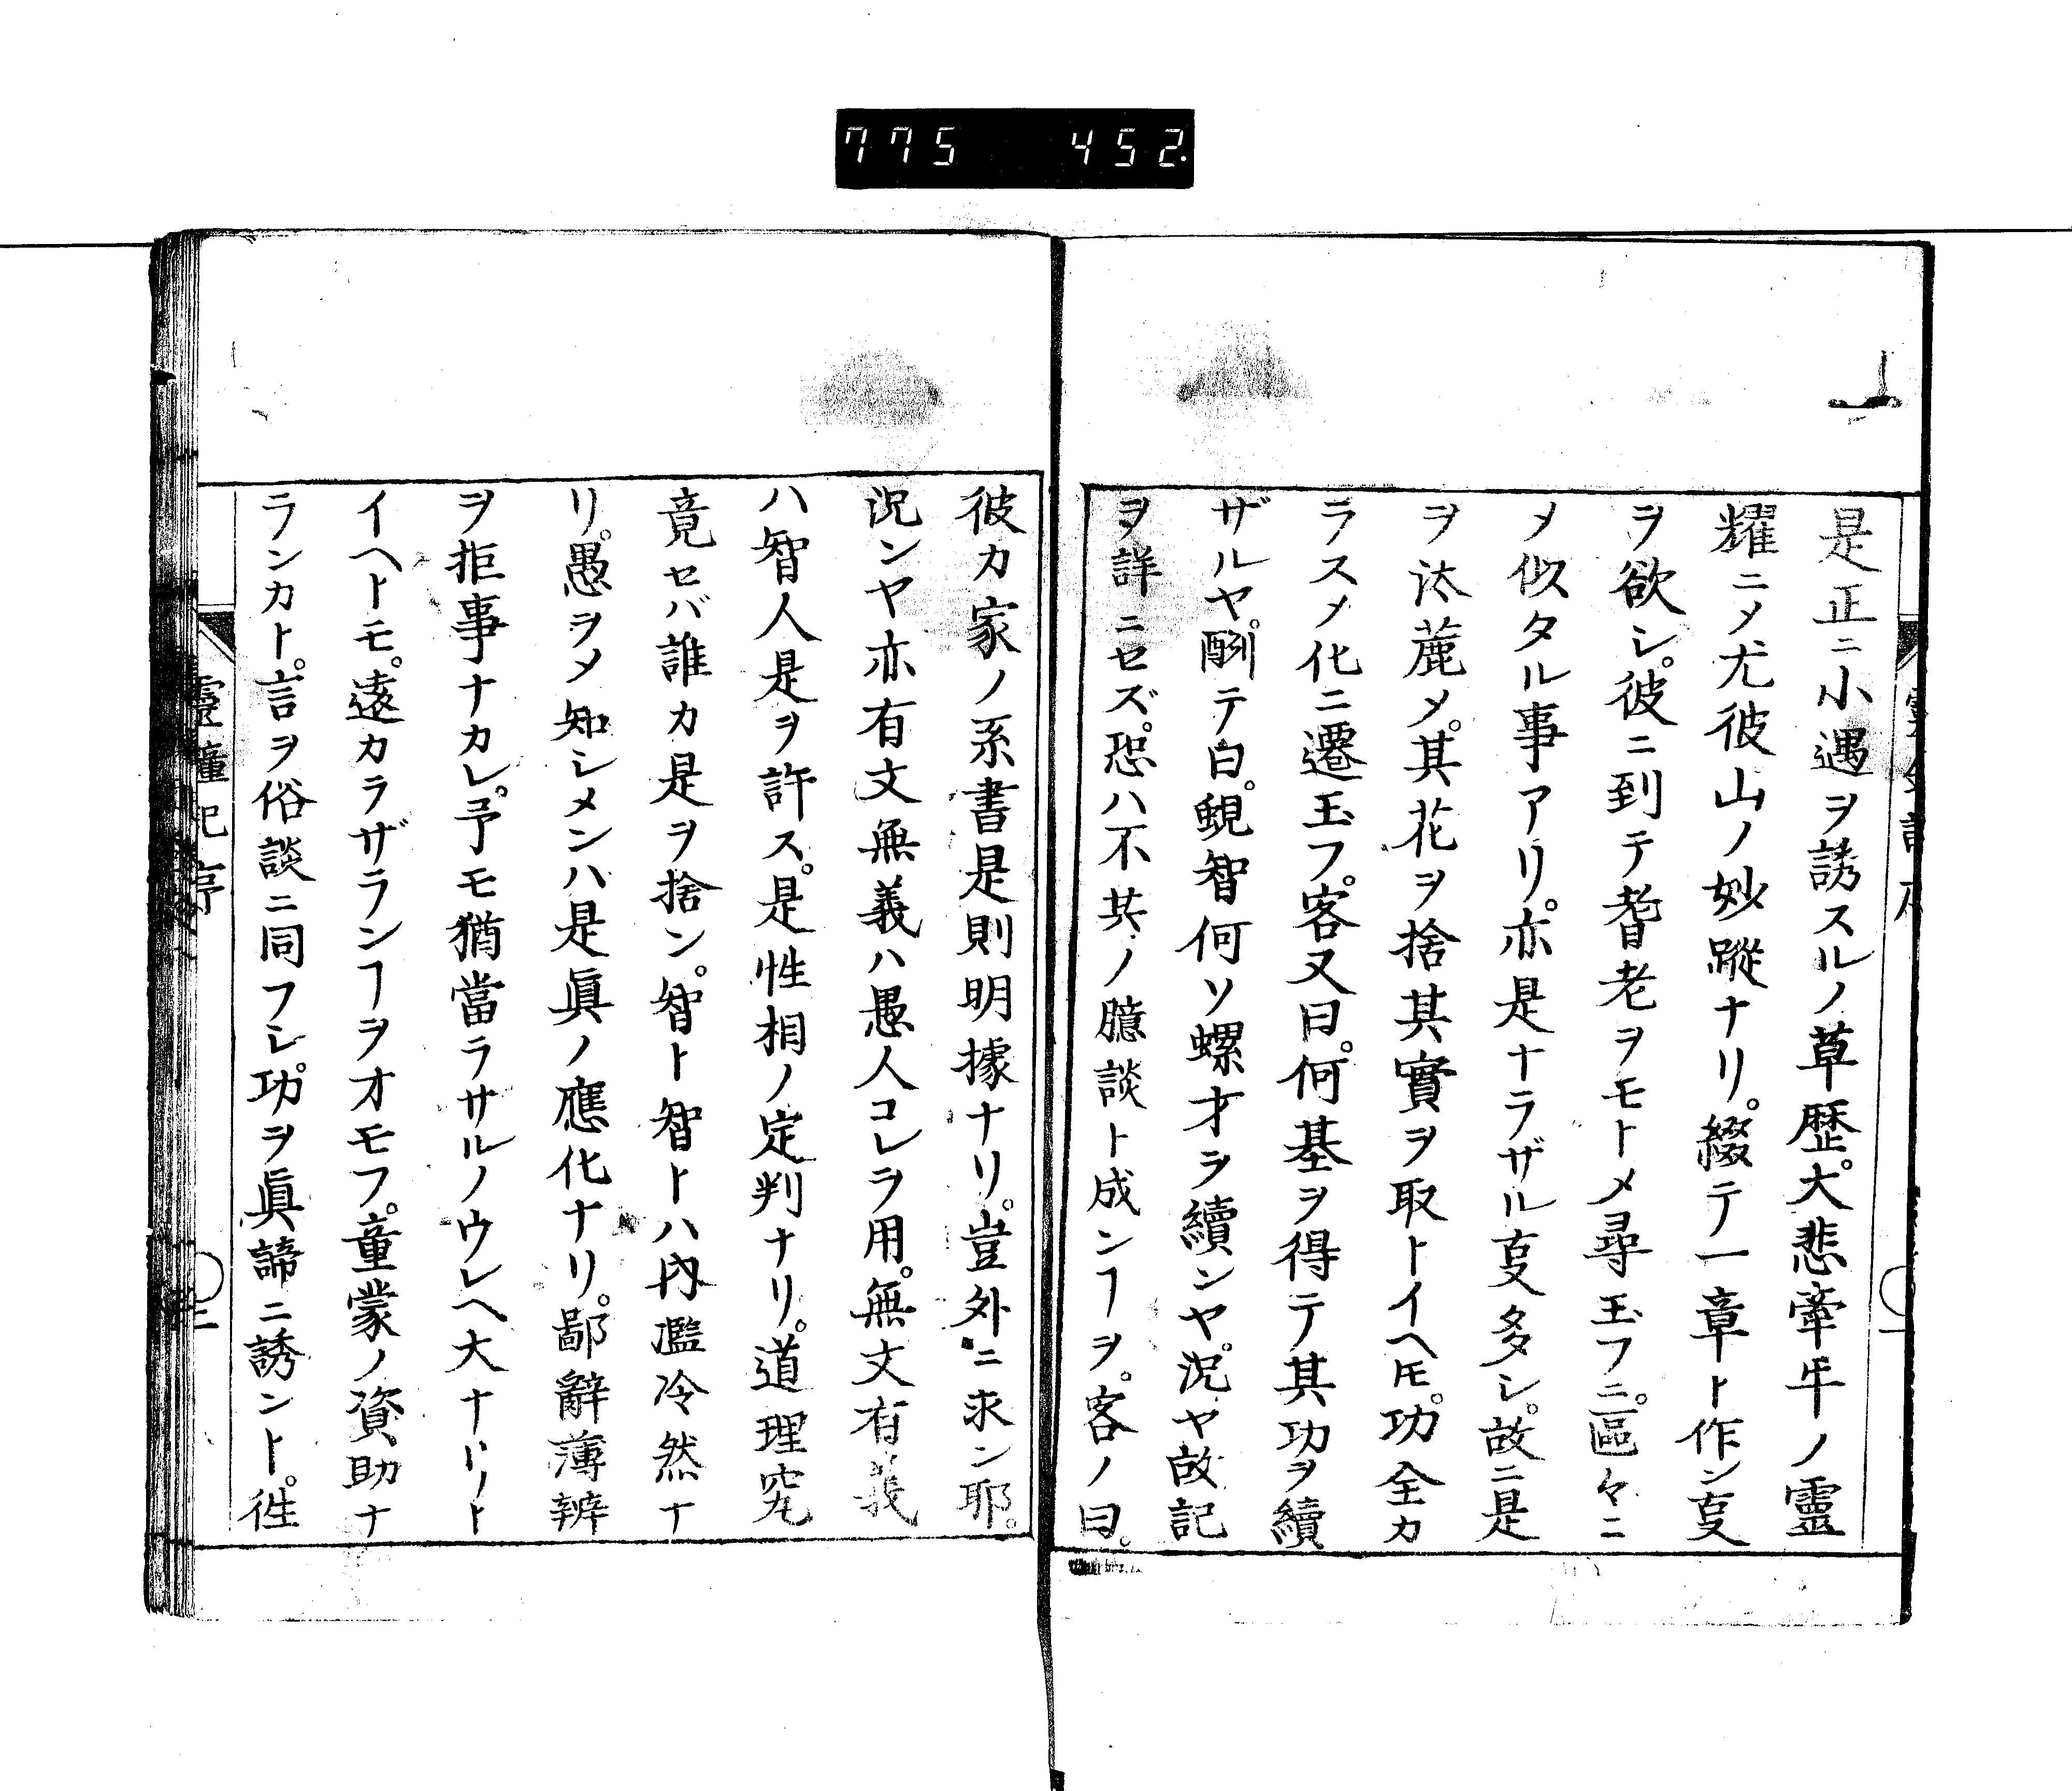 775 452.
是正ニ小遇ヲ誘スルノ草歴。大悲牽牛ノ靈
耀ニメ尤彼山ノ妙蹤ナリ。綴テ一章ト作ン㕝
ヲ欲シ。彼ニ到テ耆老ヲモトメ尋玉フニ。區々ニ
メ似タル事アリ。亦是ナラザル㕝多シ。故ニ是
ヲ汰麁メ。其花ヲ捨其實ヲ取トイヘㇺ。功全カ
ラスメ化ニ遷玉フ。客又曰。何基ヲ得テ其功ヲ續
ザルヤ。酬テ白。蜆智何ソ螺才ヲ續ンヤ。況ヤ故記
ヲ詳ニセズ。恐ハ不共ノ臆談ト成ンヿヲ。客ノ曰。
彼カ家ノ系書是則明據ナリ。豈外ニ求ン耶。
況ンヤ亦有文無義ハ愚人コレヲ用。無文有義
ハ智人是ヲ許ス。是性相ノ定判ナリ。道理究
竟セバ誰カ是ヲ捨ン。智ト智トハ内濫冷然ナ
リ。愚ヲメ知シメンハ是眞ノ應化ナリ。鄙辭薄辨
ヲ拒事ナカレ。予モ猶當ラサルノウレヘ大ナリト
イヘトモ。遠カラザランヿヲオモフ。童蒙ノ資助ナ
ランカト。言ヲ俗談ニ同フレ。功ヲ眞諦ニ誘ント。徃